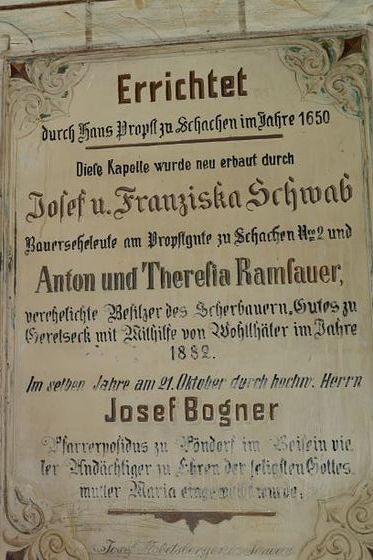 Errichtet
durch Hans Propst zu Schachen im Jahre 1650
Diese Kapelle wurde neu erbaut durch
Josef u. Franziska Schwab
Bauerseheleute am Propstgute zu Schachen Nro 2 und
Anton und Theresia Ramsauer,
verehelichte Besitzer des Scherbauern-Gutes zu
Geretseck mit Mithilfe von Wohlthäter im Jahre
1882.
Im selben Jahre am 21. Oktober durch hochw. Herrn
Josef Bogner
Pfarrprovisus zu Pöndorf im Beisein vie
ler Andächtiger zu Ehren der seligsten Gottes
mutter Maria eingeweiht wurde.
Josef